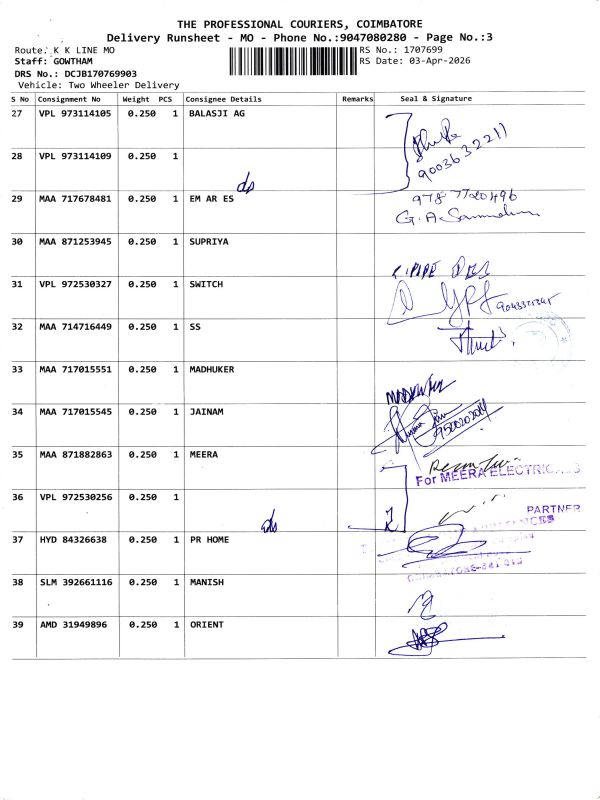 THE PROFESSIONAL COURIERS, COIMBATORE
Delivery Runsheet - MO - Phone No.:9047080280 - Page No.:3
Route. K K LINE MO
RS No.: 1707699
Staff: GOWTHAM
RS Date: 03-Apr-2026
DRS No.: DCJB170769903
Vehicle: Two Wheeler Delivery
S No Consignment No Weight PCS Consignee Details Remarks Seal & Signature
27 VPL 973114105 0.250 1 BALASJI AG
9003632211
28 VPL 973114109 0.250 1
ds
29 MAA 717678481 0.250 1 EM AR ES
978 7720496
30 MAA 871253945 0.250 1 SUPRIYA
31 VPL 972530327 0.250 1 SWITCH
32 MAA 714716449 0.250 1 SS
33 MAA 717015551 0.250 1 MADHUKER
34 MAA 717015545 0.250 1 JAINAM
35 MAA 871882863 0.250 1 MEERA
For MEERA ELECTRIC
36 VPL 972530256 0.250 1
ds
PARTNER
37 HYD 84326638 0.250 1 PR HOME
38 SLM 392661116 0.250 1 MANISH
39 AMD 31949896 0.250 1 ORIENT